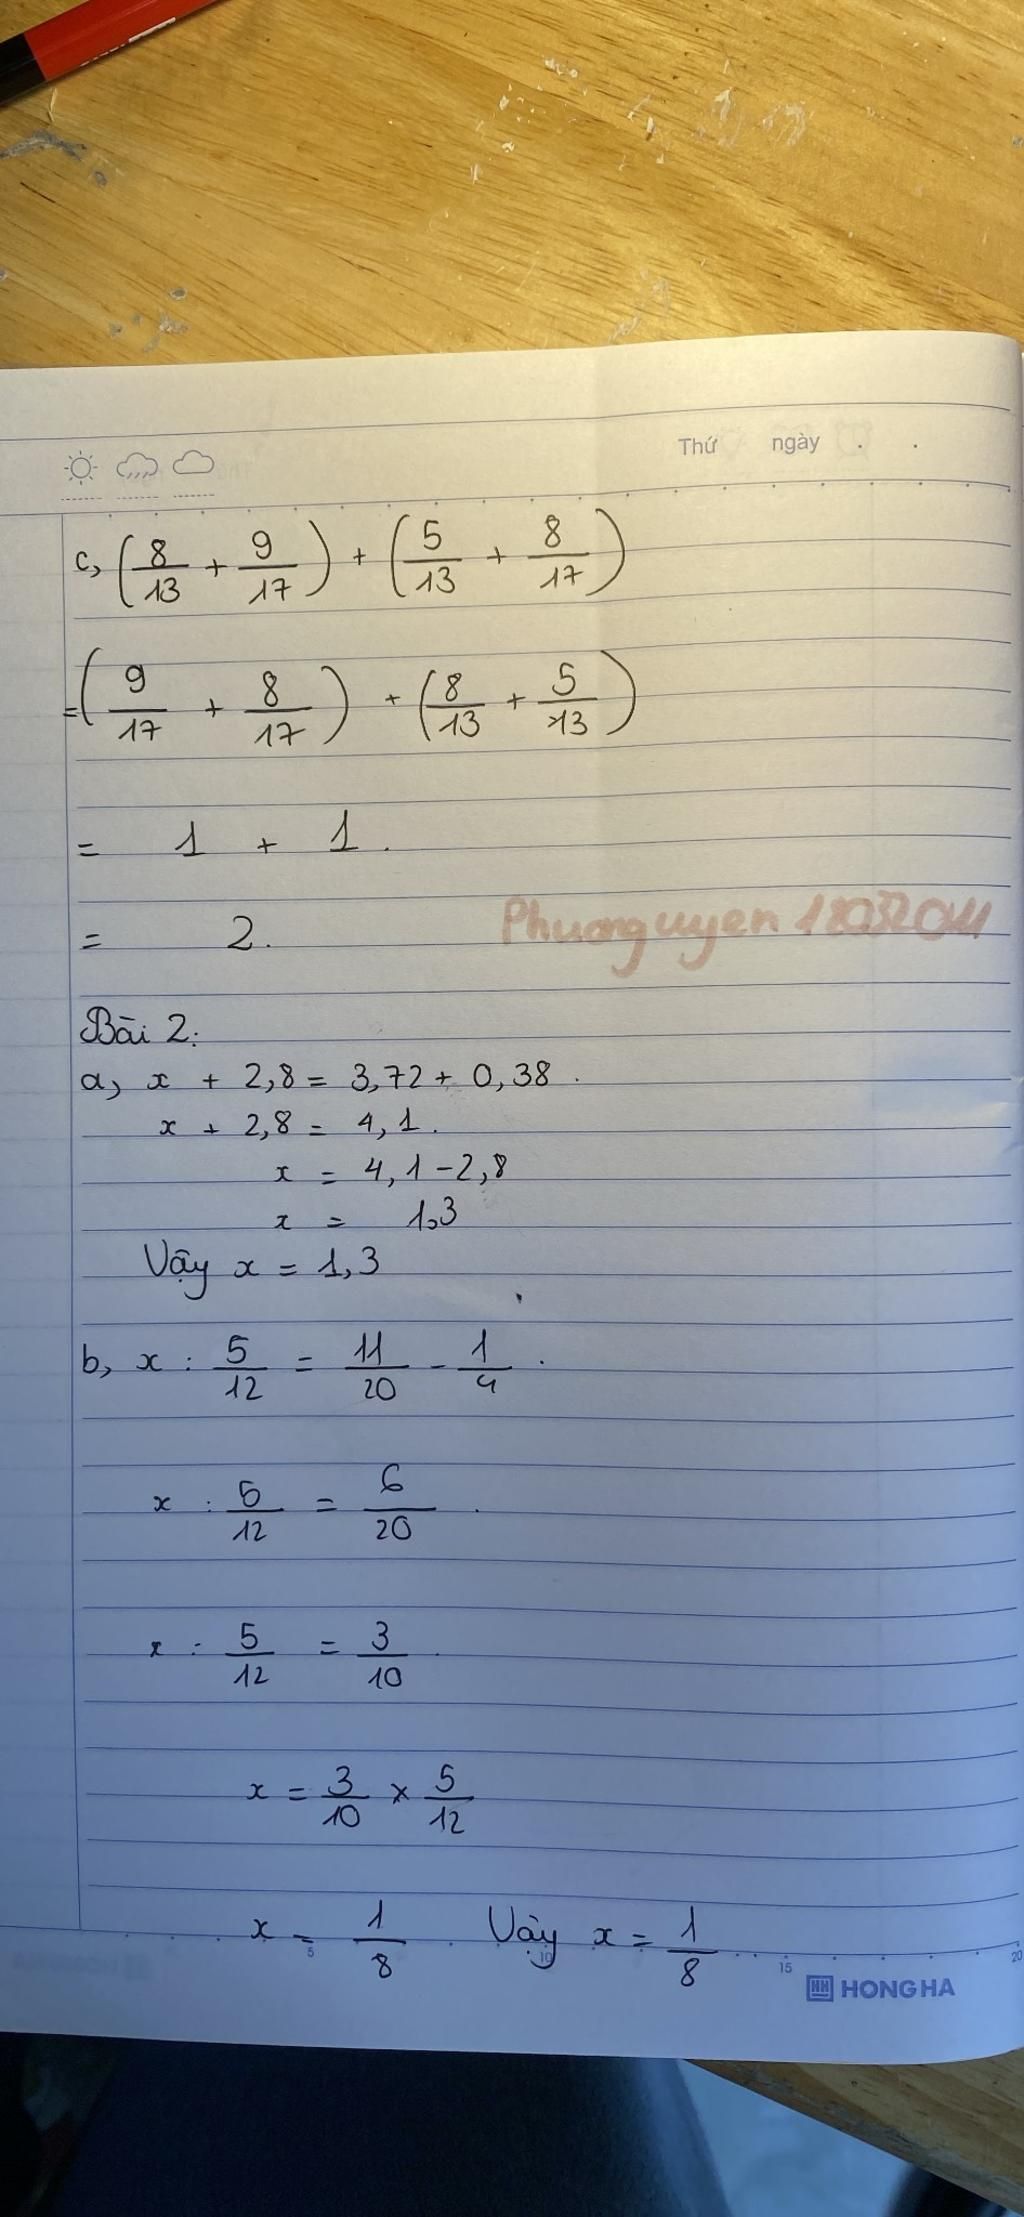 Thứ ngày
c, (8/13 + 9/17) + (5/13 + 8/17)
= (9/17 + 8/17) + (8/13 + 5/13)
= 1 + 1.
= 2.
Phuonguyen 18032011
Bài 2:
a, x + 2,8 = 3,72 + 0,38.
x + 2,8 = 4,1.
x = 4,1 - 2,8
x = 1,3
Vậy x = 1,3
b, x : 5/12 = 11/20 - 1/4.
x : 5/12 = 6/20.
x : 5/12 = 3/10.
x = 3/10 × 5/12
x = 1/8 Vậy x = 1/8
5 10 15 20
HH HONG HA